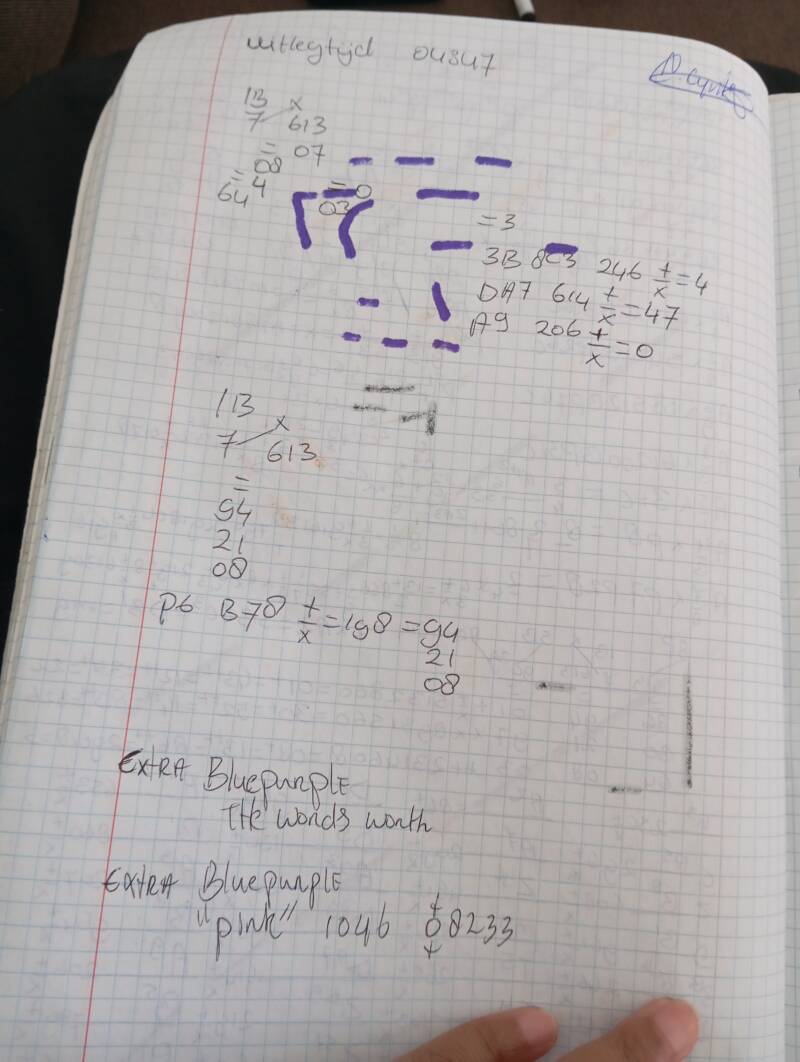 uitlegtijd 04847
1B x
7 613
= 07
08
= 4
64
= 0
03
= 3
3B 8C3 246 +/x = 4
DA7 614 +/x = 47
A9 206 +/x = 0
1B x
7 613
=
94
21
08
P6 B78 +/x = 198 = 94
21
08
EXTRA BluepurplE
THE words worth
EXTRA BluepurplE
"pink" 1046 08233